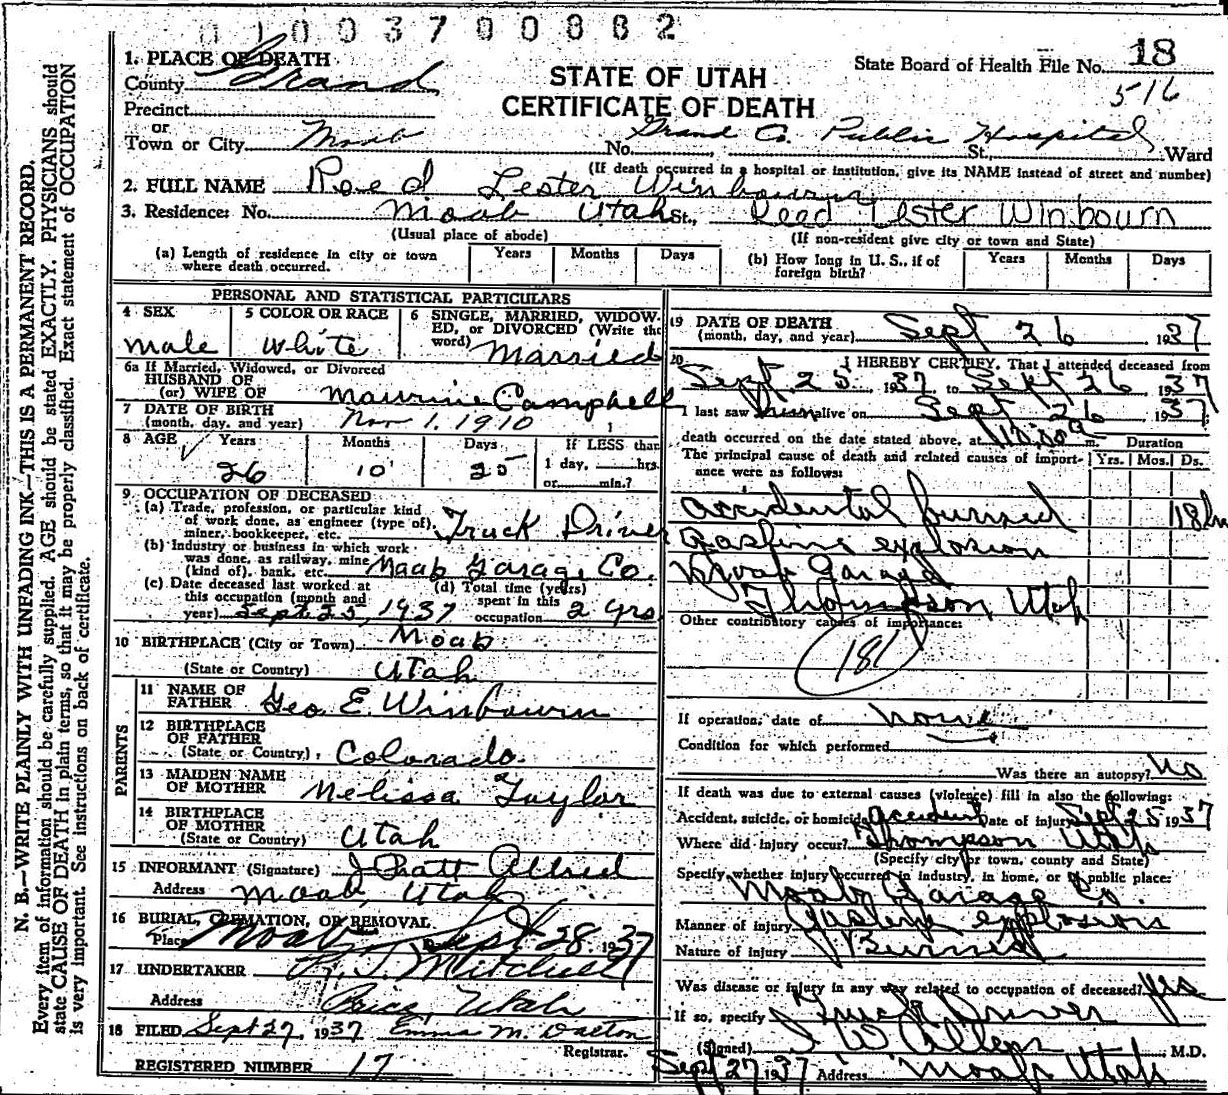 01003700882
1. PLACE OF DEATH
County Grand
STATE OF UTAH
CERTIFICATE OF DEATH
State Board of Health File No. 18
516
Precinct
or
Town or City Moab No. Grand Co. Public Hospital St., Ward
(If death occurred in a hospital or institution, give its NAME instead of street and number)
2. FULL NAME Reed Lester Winbourn
3. Residence: No. Moab Utah St., Reed Lester Winbourn
(Usual place of abode) (If non-resident give city or town and State)
(a) Length of residence in city or town where death occurred. Years Months Days
(b) How long in U. S., if of foreign birth? Years Months Days
PERSONAL AND STATISTICAL PARTICULARS
4 SEX male
5 COLOR OR RACE White
6 SINGLE, MARRIED, WIDOWED, or DIVORCED (Write the word) Married
6a If Married, Widowed, or Divorced
HUSBAND OF
(or) WIFE OF Maurine Campbell
7 DATE OF BIRTH
(month, day, and year) Nov 1. 1910
8 AGE Years 26 Months 10 Days 25 If LESS than 1 day, hrs. or min.?
9. OCCUPATION OF DECEASED
(a) Trade, profession, or particular kind of work done, as engineer (type of), miner, bookkeeper, etc. Truck Driver
(b) Industry or business in which work was done, as railway, mine (kind of), bank, etc. Moab Garage Co.
(c) Date deceased last worked at this occupation (month and year) Sept 25, 1937
(d) Total time (years) spent in this occupation 2 yrs
10 BIRTHPLACE (City or Town) Moab
(State or Country) Utah
PARENTS
11 NAME OF FATHER Geo. E. Winbourn
12 BIRTHPLACE OF FATHER
(State or Country) Colorado.
13 MAIDEN NAME OF MOTHER Melissa Taylor
14 BIRTHPLACE OF MOTHER
(State or Country) Utah
15 INFORMANT (Signature) J Pratt Allred
Address Moab, Utah
16 BURIAL, CREMATION, OR REMOVAL
Place Moab Sept 28, 1937
17 UNDERTAKER R. J. Mitchell
Address Price, Utah
18 FILED Sept 27, 1937 Emma M. Dalton
Registrar.
REGISTERED NUMBER 17
19 DATE OF DEATH
(month, day, and year) Sept 26 1937
20 I HEREBY CERTIFY, That I attended deceased from
Sept 25, 1937 to Sept 26, 1937
I last saw him alive on Sept 26 1937
death occurred on the date stated above, at m. Duration
The principal cause of death and related causes of importance were as follows: Yrs. Mos. Ds.
accidental burned 18 hr
Gasoline explosion
Moab Garage
Thompson Utah
Other contributory causes of importance:
181
If operation, date of none
Condition for which performed
Was there an autopsy? No
If death was due to external causes (violence) fill in also the following:
Accident, suicide, or homicide accident Date of injury Sept 25 1937
Where did injury occur? Thompson Utah
(Specify city or town, county and State)
Specify whether injury occurred in industry, in home, or in public place:
Moab Garage Co.
Manner of injury Gasoline explosion
Nature of injury Burned
Was disease or injury in any way related to occupation of deceased? Yes
If so, specify Truck Driver
(Signed) I W Allen M.D.
Sept 27 1937 Address Moab Utah
N. B.—WRITE PLAINLY WITH UNFADING INK—THIS IS A PERMANENT RECORD.
Every item of information should be carefully supplied. AGE should be stated EXACTLY. PHYSICIANS should
state CAUSE OF DEATH in plain terms, so that it may be properly classified. Exact statement of OCCUPATION
is very important. See instructions on back of certificate.